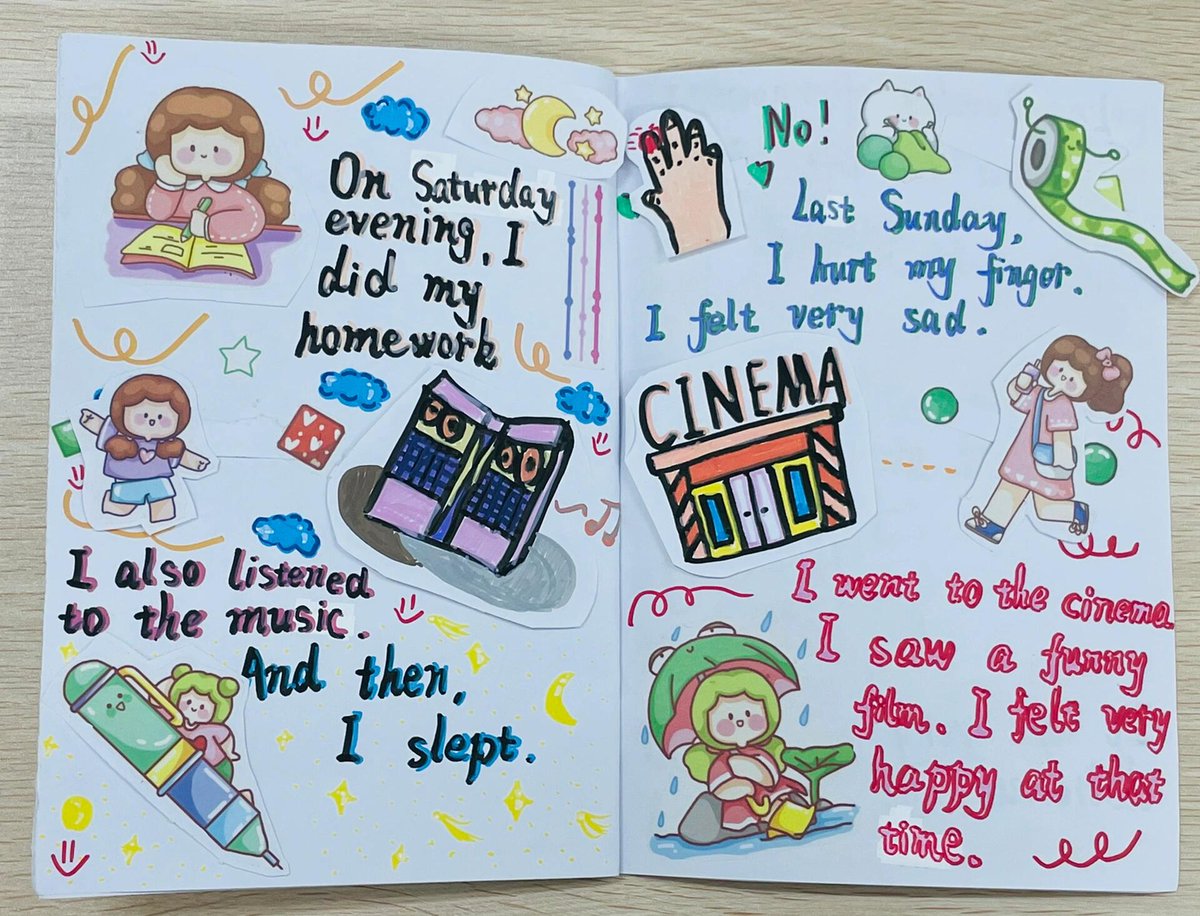 On Saturday
evening, I
did my
homework
I also listened
to the music.
And then,
I slept.
No!
Last Sunday,
I hurt my finger.
I felt very sad.
CINEMA
I went to the cinema.
I saw a funny
film. I felt very
happy at that
time.